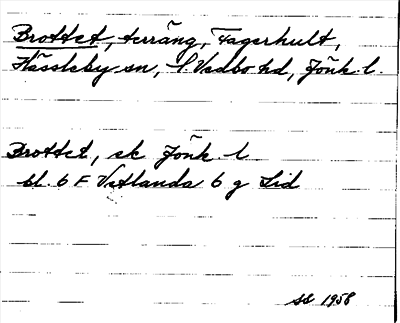 Brottet, terräng, Fagerhult,
Hässleby sn, S Vedbo hd, Jönk. l.
Brottet, ek Jönk. l
bl. 6 F Vetlanda 6 g Lid
SS 1958